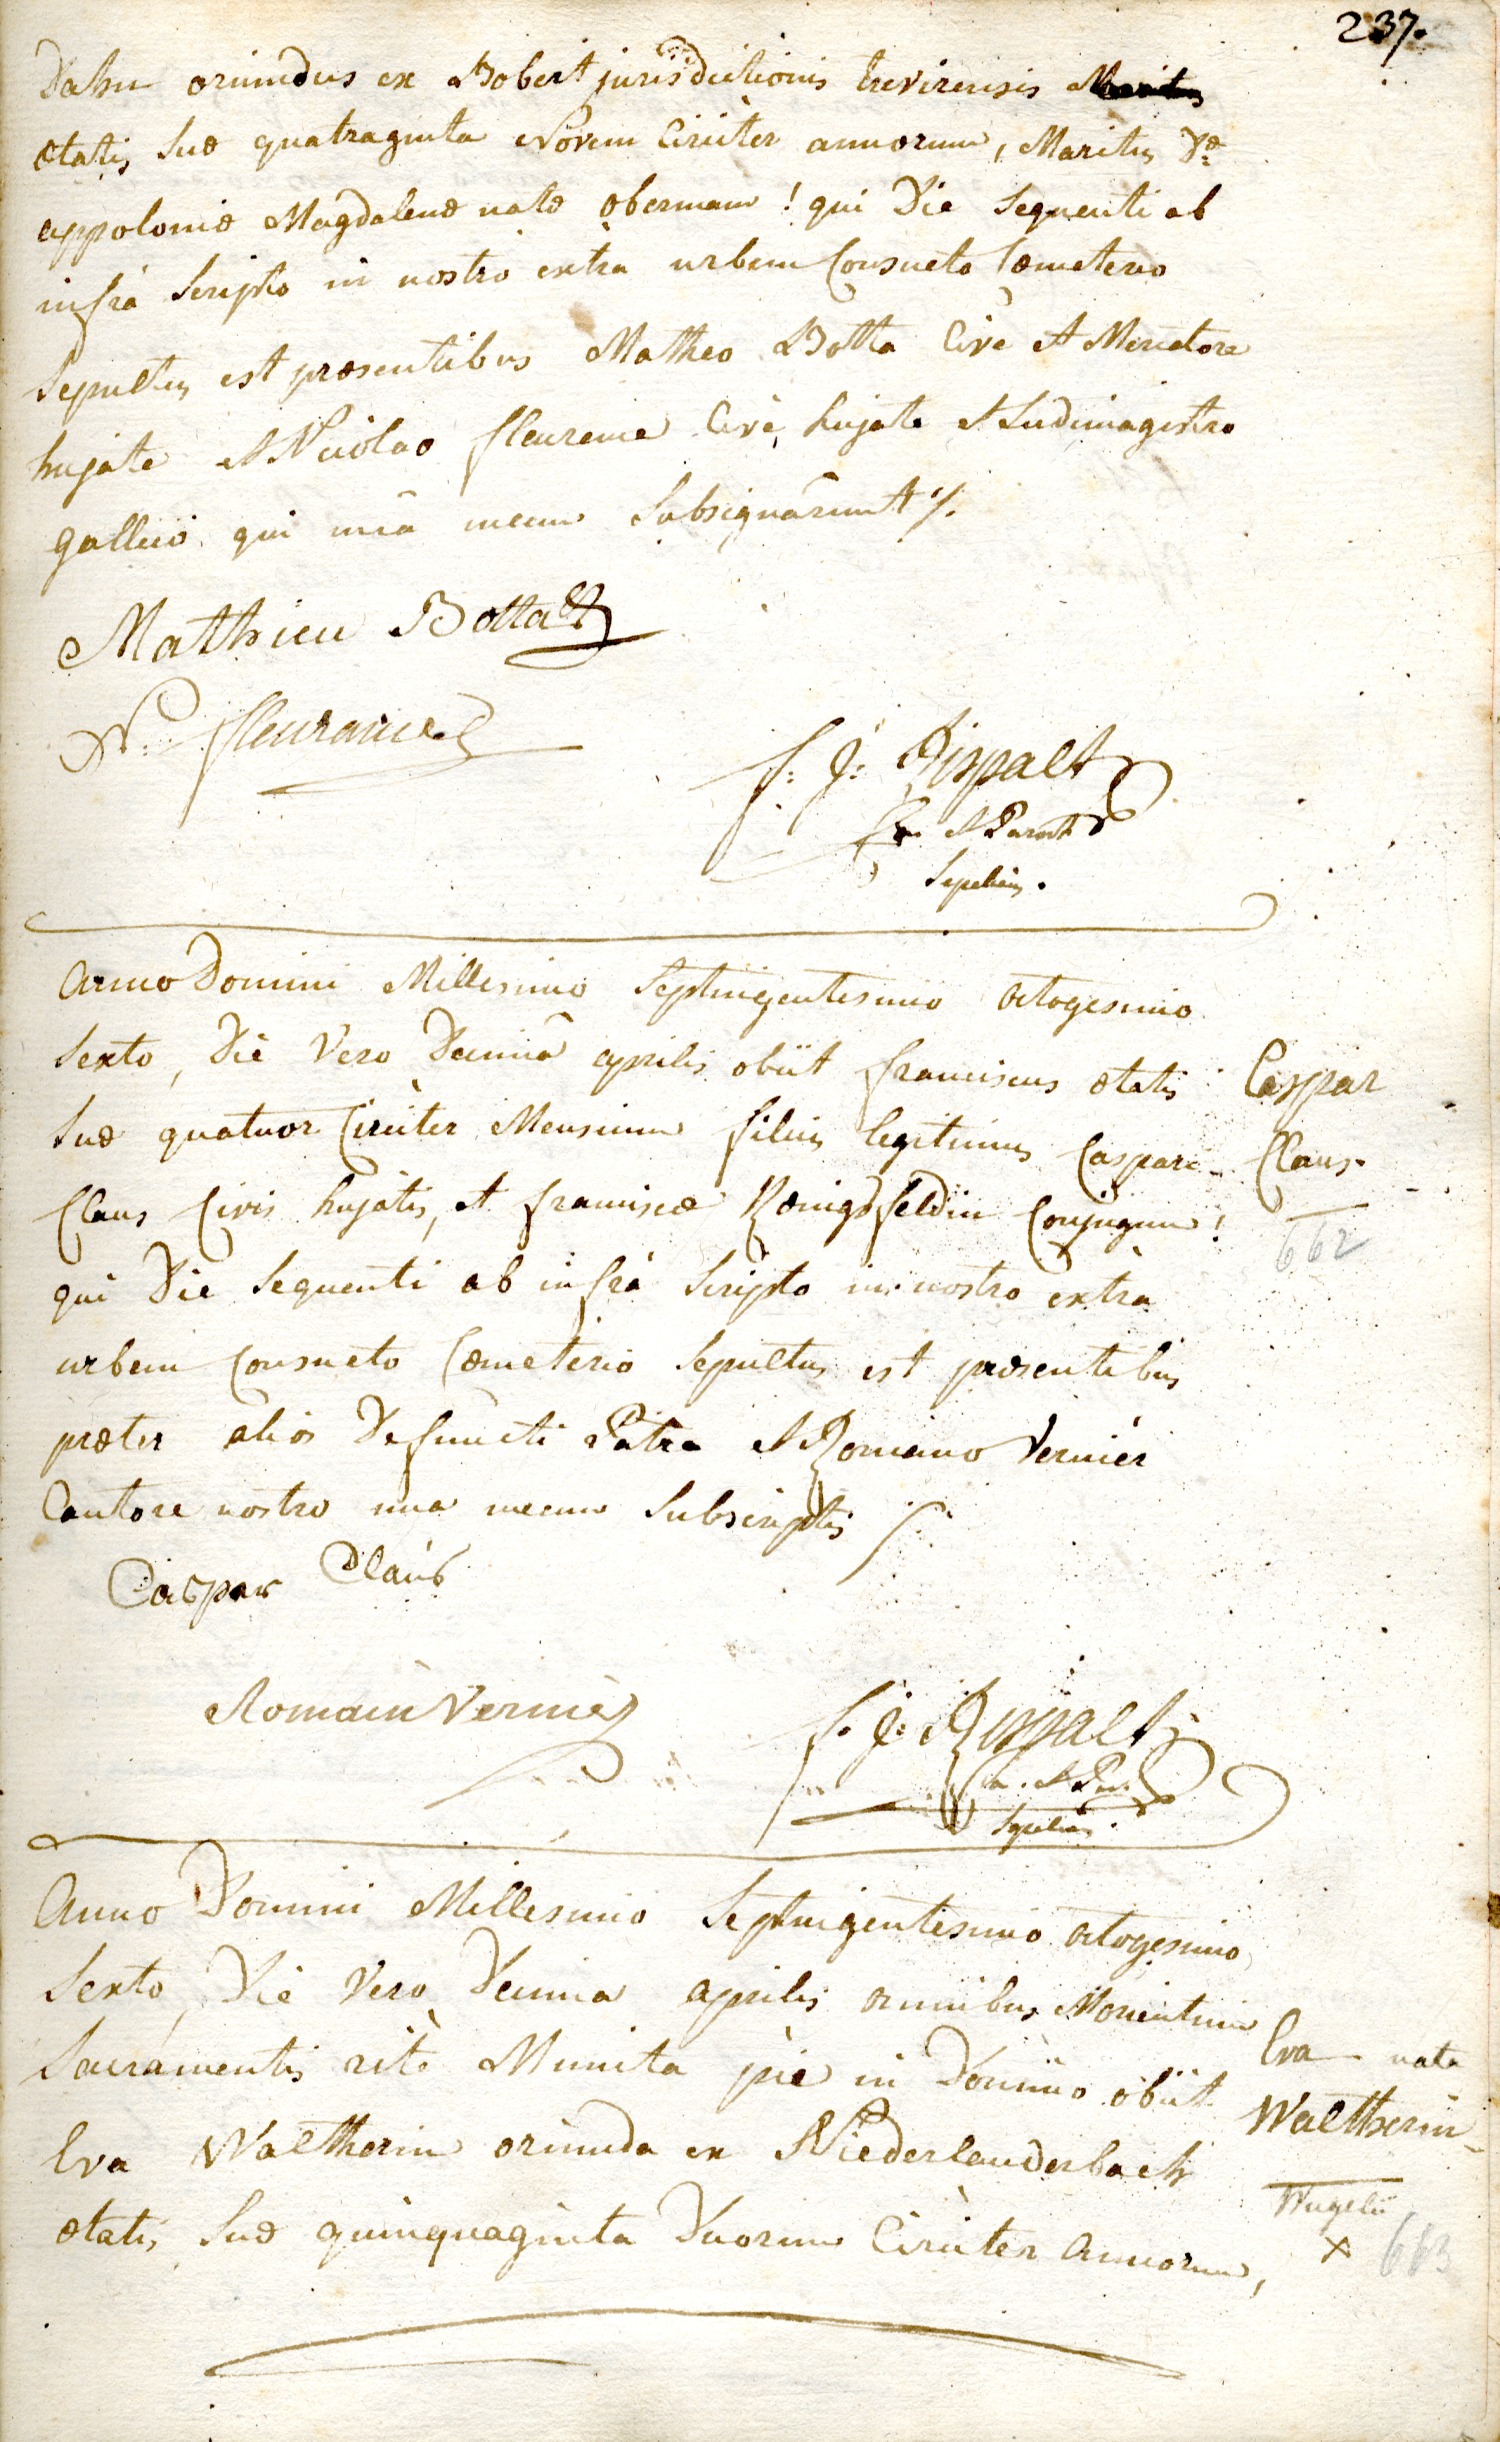 237.
Dahn oriundus ex Bobert jurisdictionis trevirensis
ætatis suæ quatraginta novem Circiter annorum, Maritus dæ
appoloniæ Magdalenæ natæ obermann! qui Die sequenti ab
infrà scripto in nostro extra urbem Consueto Cœmeterio
sepultus est præsentibus Matheo Botta Cive et Mercatore
hujate et Nicolao fleurence Cive hujate et Ludimagistro
gallico qui unà mecum subsignârunt ./.
Mathieu Botta
N: fleurance
f: J: Rispalt
et Paroch
sepeliens.
Anno Domini Millesimo septingentesimo octogesimo
sexto, Die Vero Decimâ aprilis obiit franciscus ætatis
suæ quatuor Circiter Mensium filius legitimus Caspari
Claus Civis hujatis, et franciscæ Kœnigsfeldin Conjugum!
qui Die sequenti ab infrà scripto in nostro extra
urbem Consueto Cœmeterio sepultus est præsentibus
præter alios Defuncti Patre et Romano Vernier
Cantore nostro una mecum subscriptis ./.
Caspar
Claus.
662
Caspar Claus
Romain Vernier
f. J: Rispalt
et Par.
sepeliens.
Anno Domini Millesimo septingentesimo octogesimo
sexto, Die Vero Decima aprilis omnibus Morientium
Sacramentis ritè Munita piè in Domino obiit
Eva Waltherin oriunda ex Niederlauderbach
ætatis suæ quinquaginta Duorum Circiter annorum,
Eva nata
Waltherin
x 663